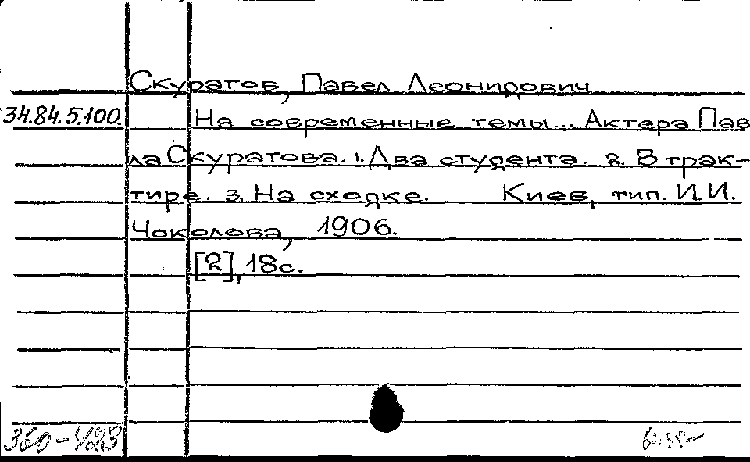 Скуратов, Павел Леонидович
34.84.5.100. На современные темы... Актера Пав
ла Скуратова. 1. Два студента. 2. В трак-
тире. 3. На сходке. Киев, тип. И.И.
Чоколова, 1906.
[2], 18с.
360-423